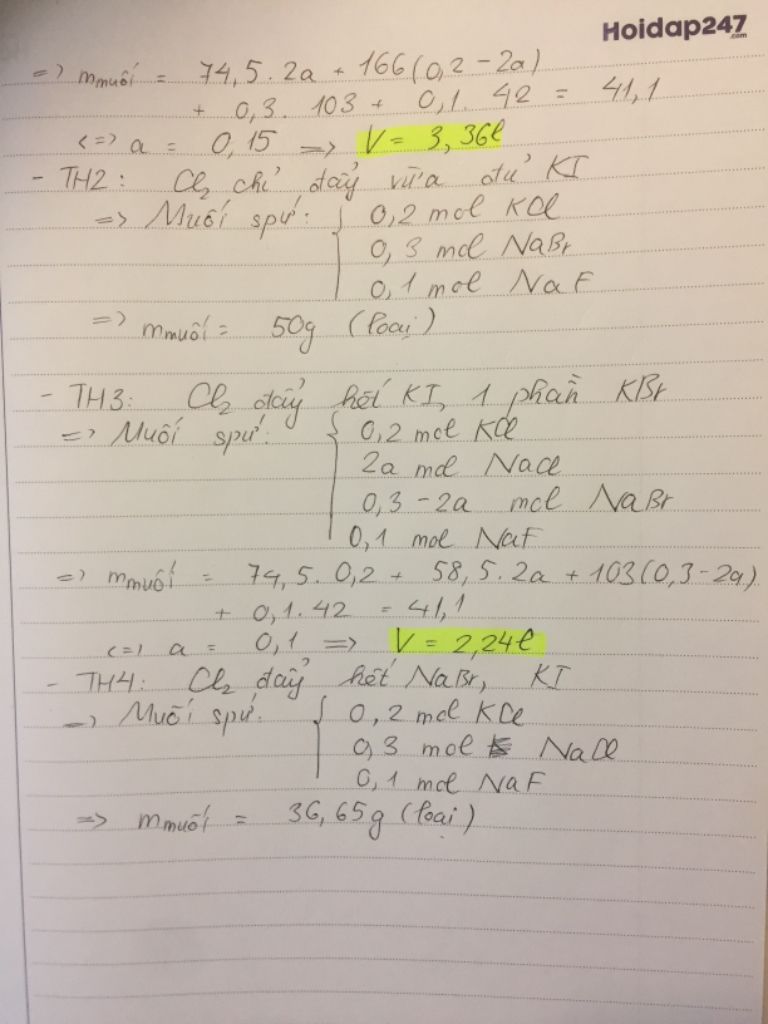 Hoidap247
.com
=> mmuối = 74,5.2a + 166(0,2-2a)
+ 0,3. 103 + 0,1. 42 = 41,1
<=> a = 0,15 => V = 3,36l
- TH2: Cl2 chỉ đẩy vừa đủ KI
=> Muối spứ: { 0,2 mol KCl
0,3 mol NaBr
0,1 mol NaF
=> mmuối = 50g (loại)
- TH3: Cl2 đẩy hết KI, 1 phần KBr
=> Muối spứ: { 0,2 mol KCl
2a mol NaCl
0,3-2a mol NaBr
0,1 mol NaF
=> mmuối = 74,5.0,2 + 58,5.2a + 103(0,3-2a)
+ 0,1.42 = 41,1
<=> a = 0,1 => V = 2,24l
- TH4: Cl2 đẩy hết NaBr, KI
=> Muối spứ: { 0,2 mol KCl
0,3 mol NaCl
0,1 mol NaF
=> mmuối = 36,65g (loại)